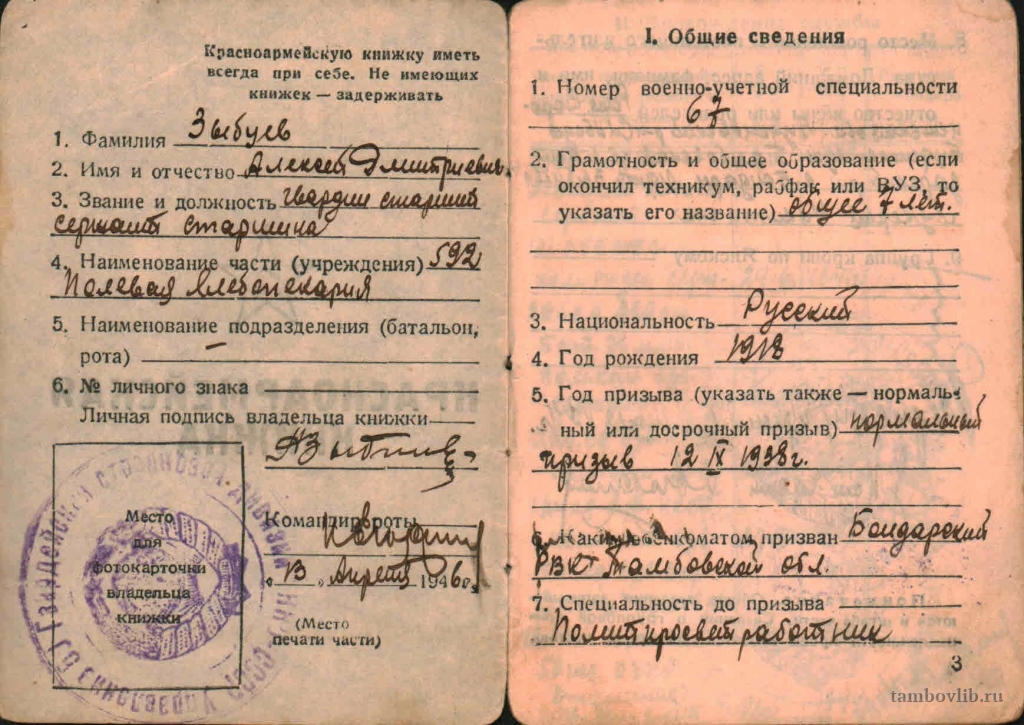 Красноармейскую книжку иметь
всегда при себе. Не имеющих
книжек — задерживать
1. Фамилия Зыбуев
2. Имя и отчество Алексей Дмитриевич
3. Звание и должность гвардии старший
сержант старшина
4. Наименование части (учреждения) 592
Полевая хлебопекария
5. Наименование подразделения (батальон,
рота) —
6. № личного знака
Личная подпись владельца книжки
Место
для
фотокарточки
владельца
книжки
Командир роты
„13" Апреля 1946 г.
(Место
печати части)
I. Общие сведения
1. Номер военно-учетной специальности
67
2. Грамотность и общее образование (если
окончил техникум, рабфак или ВУЗ, то
указать его название) общее 7 лет.
3. Национальность Русский
4. Год рождения 1918
5. Год призыва (указать также — нормаль-
ный или досрочный призыв) нормальный
призыв 12 IX 1938 г.
6. Каким военкоматом призван Бондарский
РВК Тамбовской обл.
7. Специальность до призыва
Политпросвет работник
3
tambovlib.ru